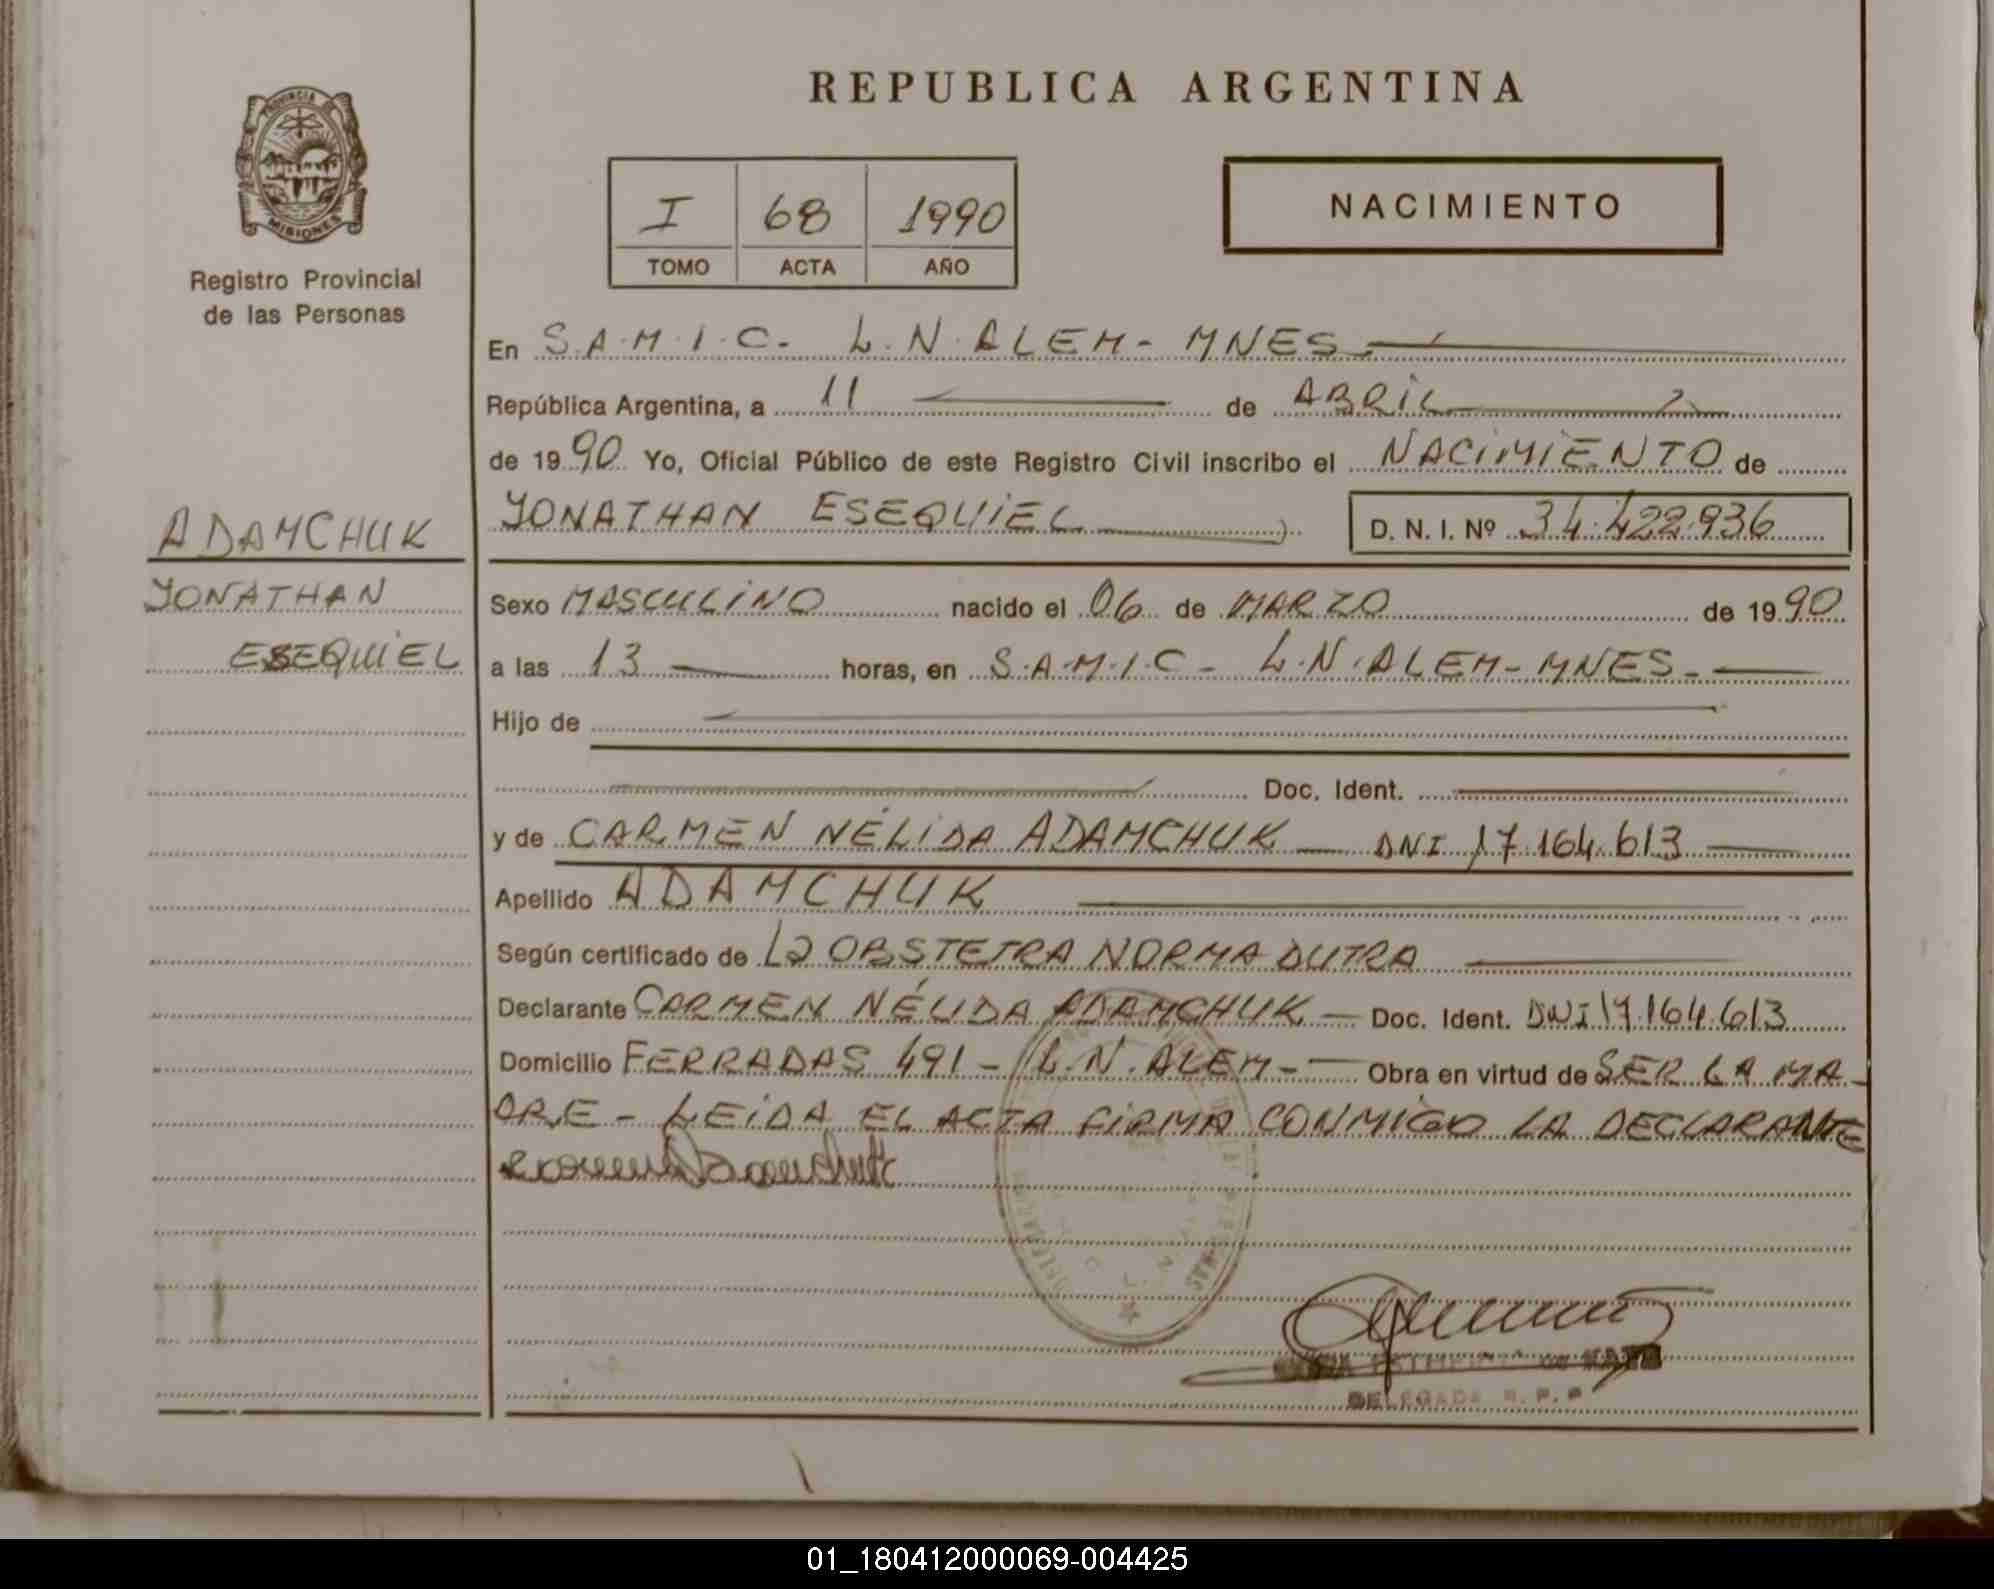 REPUBLICA ARGENTINA
PROVINCIA DE
MISIONES
Registro Provincial
de las Personas
I 68 1990
TOMO ACTA AÑO
NACIMIENTO
En S.A.M.I.C. - L.N. ALEM - MNES -
República Argentina, a 11 de ABRIL
de 1990 Yo, Oficial Público de este Registro Civil inscribo el NACIMIENTO de
YONATHAN ESEQUIEL D. N. I. Nº 34.422.936
ADAMCHUK
YONATHAN
ESEQUIEL
Sexo MASCULINO nacido el 06 de MARZO de 1990
a las 13 horas, en S.A.M.I.C - L.N. ALEM - MNES -
Hijo de
Doc. Ident.
y de CARMEN NÉLIDA ADAMCHUK — DNI 17.164.613
Apellido ADAMCHUK
Según certificado de La OBSTETRA NORMA DUTRA
Declarante CARMEN NÉLIDA ADAMCHUK — Doc. Ident. DNI 17.164.613
Domicilio FERRADAS 491 - L.N. ALEM - Obra en virtud de SER LA MA-
DRE - LEIDA EL ACTA FIRMA CONMIGO LA DECLARANTE
DELEGADA R. P. P
01_180412000069-004425